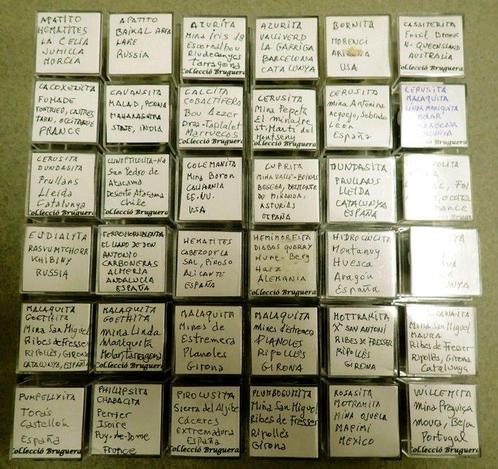 APATITO
HEMATITES
LA CELIA
JUMILLA
MURCIA
APATITO
BAIKAL AREA
LAKE
RUSSIA
AZURITA
Mina Iris
Escornalbou
Riudecanyes
Tarragona
Col·lecció Bruguera
AZURITA
VALLVERD
LA GARRIGA
BARCELONA
CATALUNYA
BORNITA
MORENCI
USA
CASSITERITA
N. QUEENSLAND
AUSTRALIA
LACOXENITA
FUMADE
TARN, OCCITANIE
FRANCE
CAVANSITA
MALAD, POONA
MAHARASHTRA
STATE, INDIA
CALCITA
COBALTIFERA
Bou Azzer
Draa-Tafilalet
Marruecos
Col·lecció Bruguera
CERUSITA
Mina Pepeta
El
St. Martí del
Montseny
CERUSITA
Mina Antonina
León
España
CERUSITA
MALAQUITA
Linda Mariquita
MOLAR
Col·lecció Bruguera
CERUSITA
DUNDASITA
Prullans
Lleida
Catalunya
Col·lecció Bruguera
San Pedro de
Atacama
Desierto Atacama
Chile
COLEMANITA
Mina Boron
CALIFORNIA
EE.UU.
USA
CUPRITA
ASTURIAS
ESPAÑA
DUNDASITA
PRULLANS
LLEIDA
CATALUNYA
ESPAÑA
Col·lecció Bruguera
EUDIALYTA
RASVUMTCHORR
KHIBINY
RUSSIA
EL LLANO DE DON
ANTONIO
CARBONERAS
ALMERIA
ANDALUCIA
ESPAÑA
HEMATITES
CABEZO DE LA
SAL, PINOSO
ALICANTE
ESPAÑA
HEMIMORFITA
DIABAS QUARRY
Huneberg
Harz
ALEMANIA
Col·lecció Bruguera
HIDROCINCITA
Montanuy
Huesca
Aragón
España
MALAQUITA
GOETHITA
Mina San Miguel
Ribes de Fresser
Ripollès, GIRONA
CATALUNYA, ESPAÑA
MALAQUITA
GOETHITA
Mina Linda
Mariquita
Molar, Tarragona
Col·lecció Bruguera
MALAQUITA
Mines de
Estremera
Planoles
Girona
MALAQUITA
Mines d'Estremera
PLANOLES
RIPOLLÈS
GIRONA
MOTTRAMITA
SAN ANTONI
RIBES de FRESSER
RIPOLLÈS
GIRONA
Mina San Miguel
Ribes de Fresser
Ripollès, Girona
Catalunya
PUMPELLYITA
Toràs
Castellón
España
PHILLIPSITA
CHABACITA
Perrier
Issoire
Puy-de-Dome
France
PIROLUSITA
Sierra del Aljibe
Cáceres
Extremadura
ESPAÑA
Col·lecció Bruguera
PLUMBOGUMMITA
Mina San Miguel
Ribes de Fresser
Ripollès
Girona
ROSASITA
MOTRAMITA
MINA OJUELA
MAPIMI
MEXICO
WILLEMITA
Mina Preguiça
Moura, Beja
Portugal
Col·lecció Bruguera